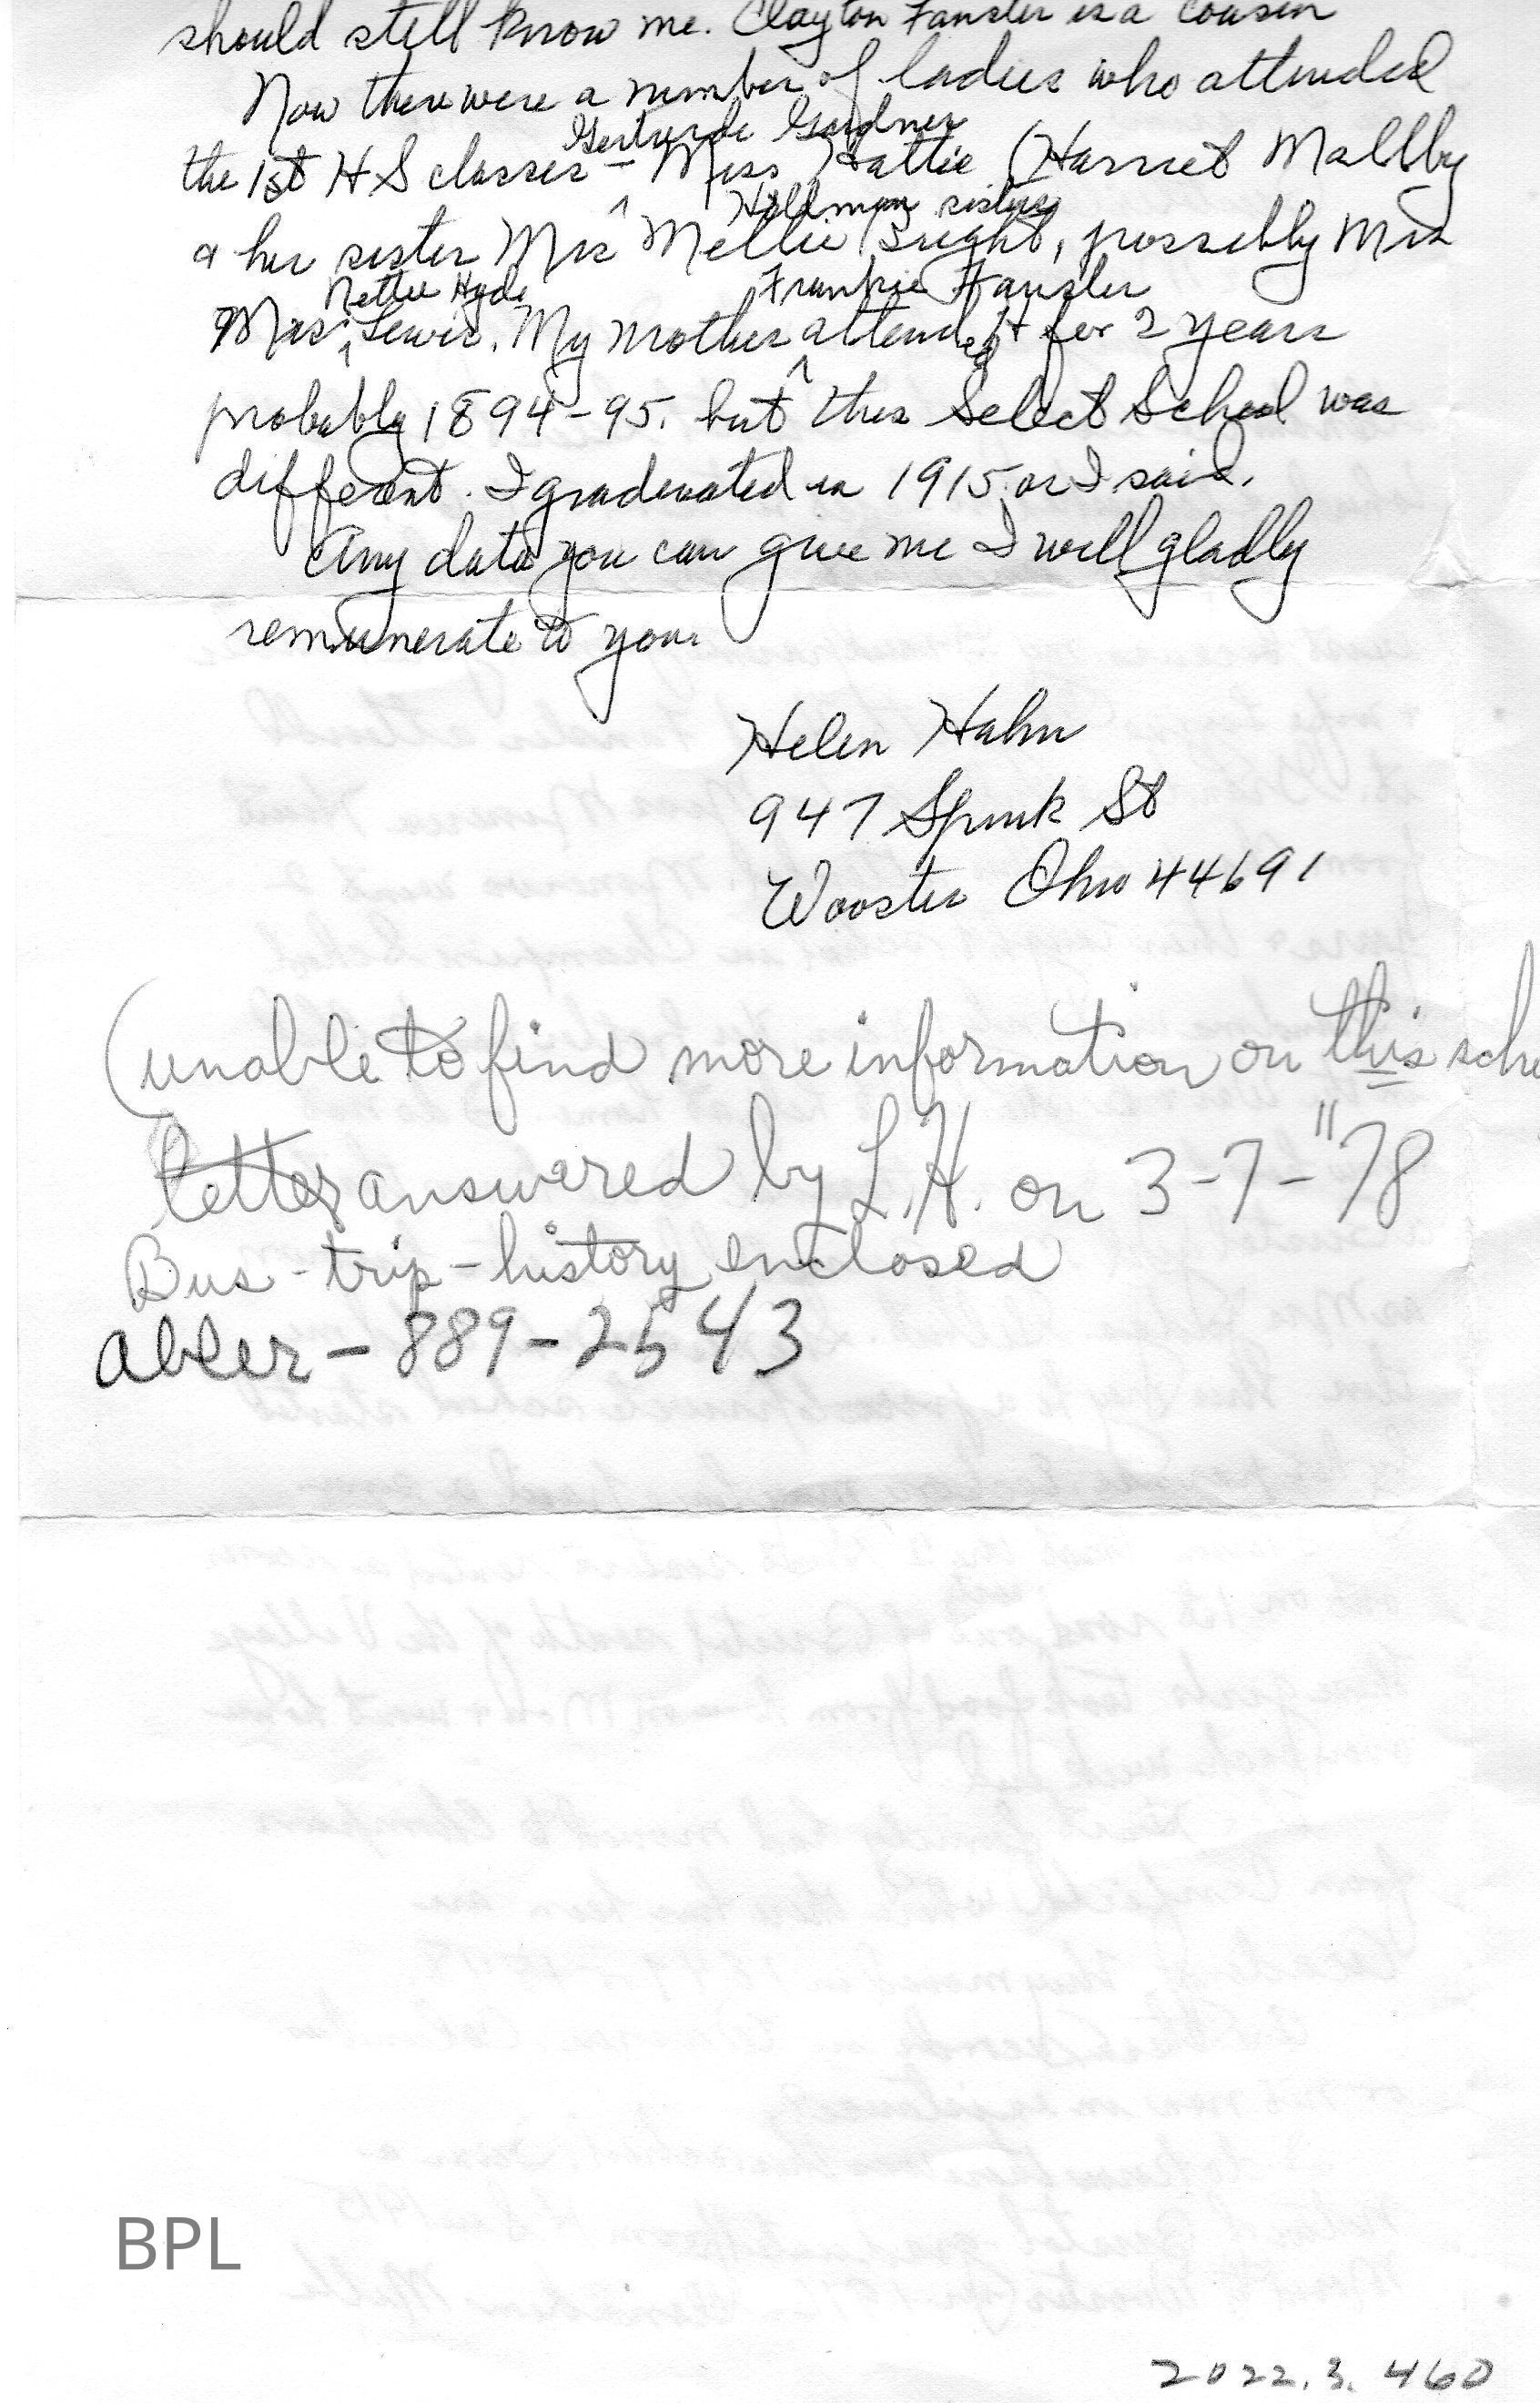 should still know me. Clayton Fansler is a cousin
Now there were a number of ladies who attended
Gertrude Gardner
the 1st H S classes - Miss Hattie (Harriet Maltby
Holdman sisters
& her sister Mrs Nellie Bright, possibly Mrs
Nettie Hyde Frankie Fansler
Mrs. Lewis. My mother attended it for 2 years
probably 1894-95. but this Select School was
different. I graduated in 1915 as I said.
Any data you can give me I will gladly
remunerate to you.
Helen Hahn
947 Spink St
Wooster Ohio 44691
(unable to find more information on this scho
letter answered by L.H. on 3-7-"78
Bus - trip - history enclosed
abler - 889-2543
BPL
2022.3.460